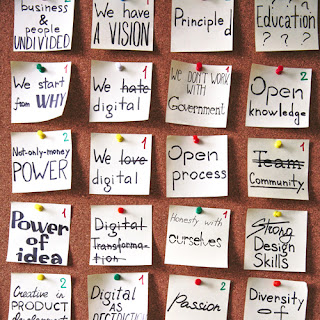 business
&
people
UNDIVIDED
We have
A VISION
Principled
Education
? ? ?
We start
from WHY
1
We hate
digital
1
We DON'T WORK
with
Government
1
Open
knowledge
2
Not-only-money
POWER
2
We love
digital
1
Open
process
Team
Community
Power
of
idea
1
Digital
Transforma-
tion
1
Honesty with
ourselves
1
Strong
Design
Skills
2
Creative in
PRODUCT
development
2
Digital
AS
1
Passion
2
Diversity
of
1